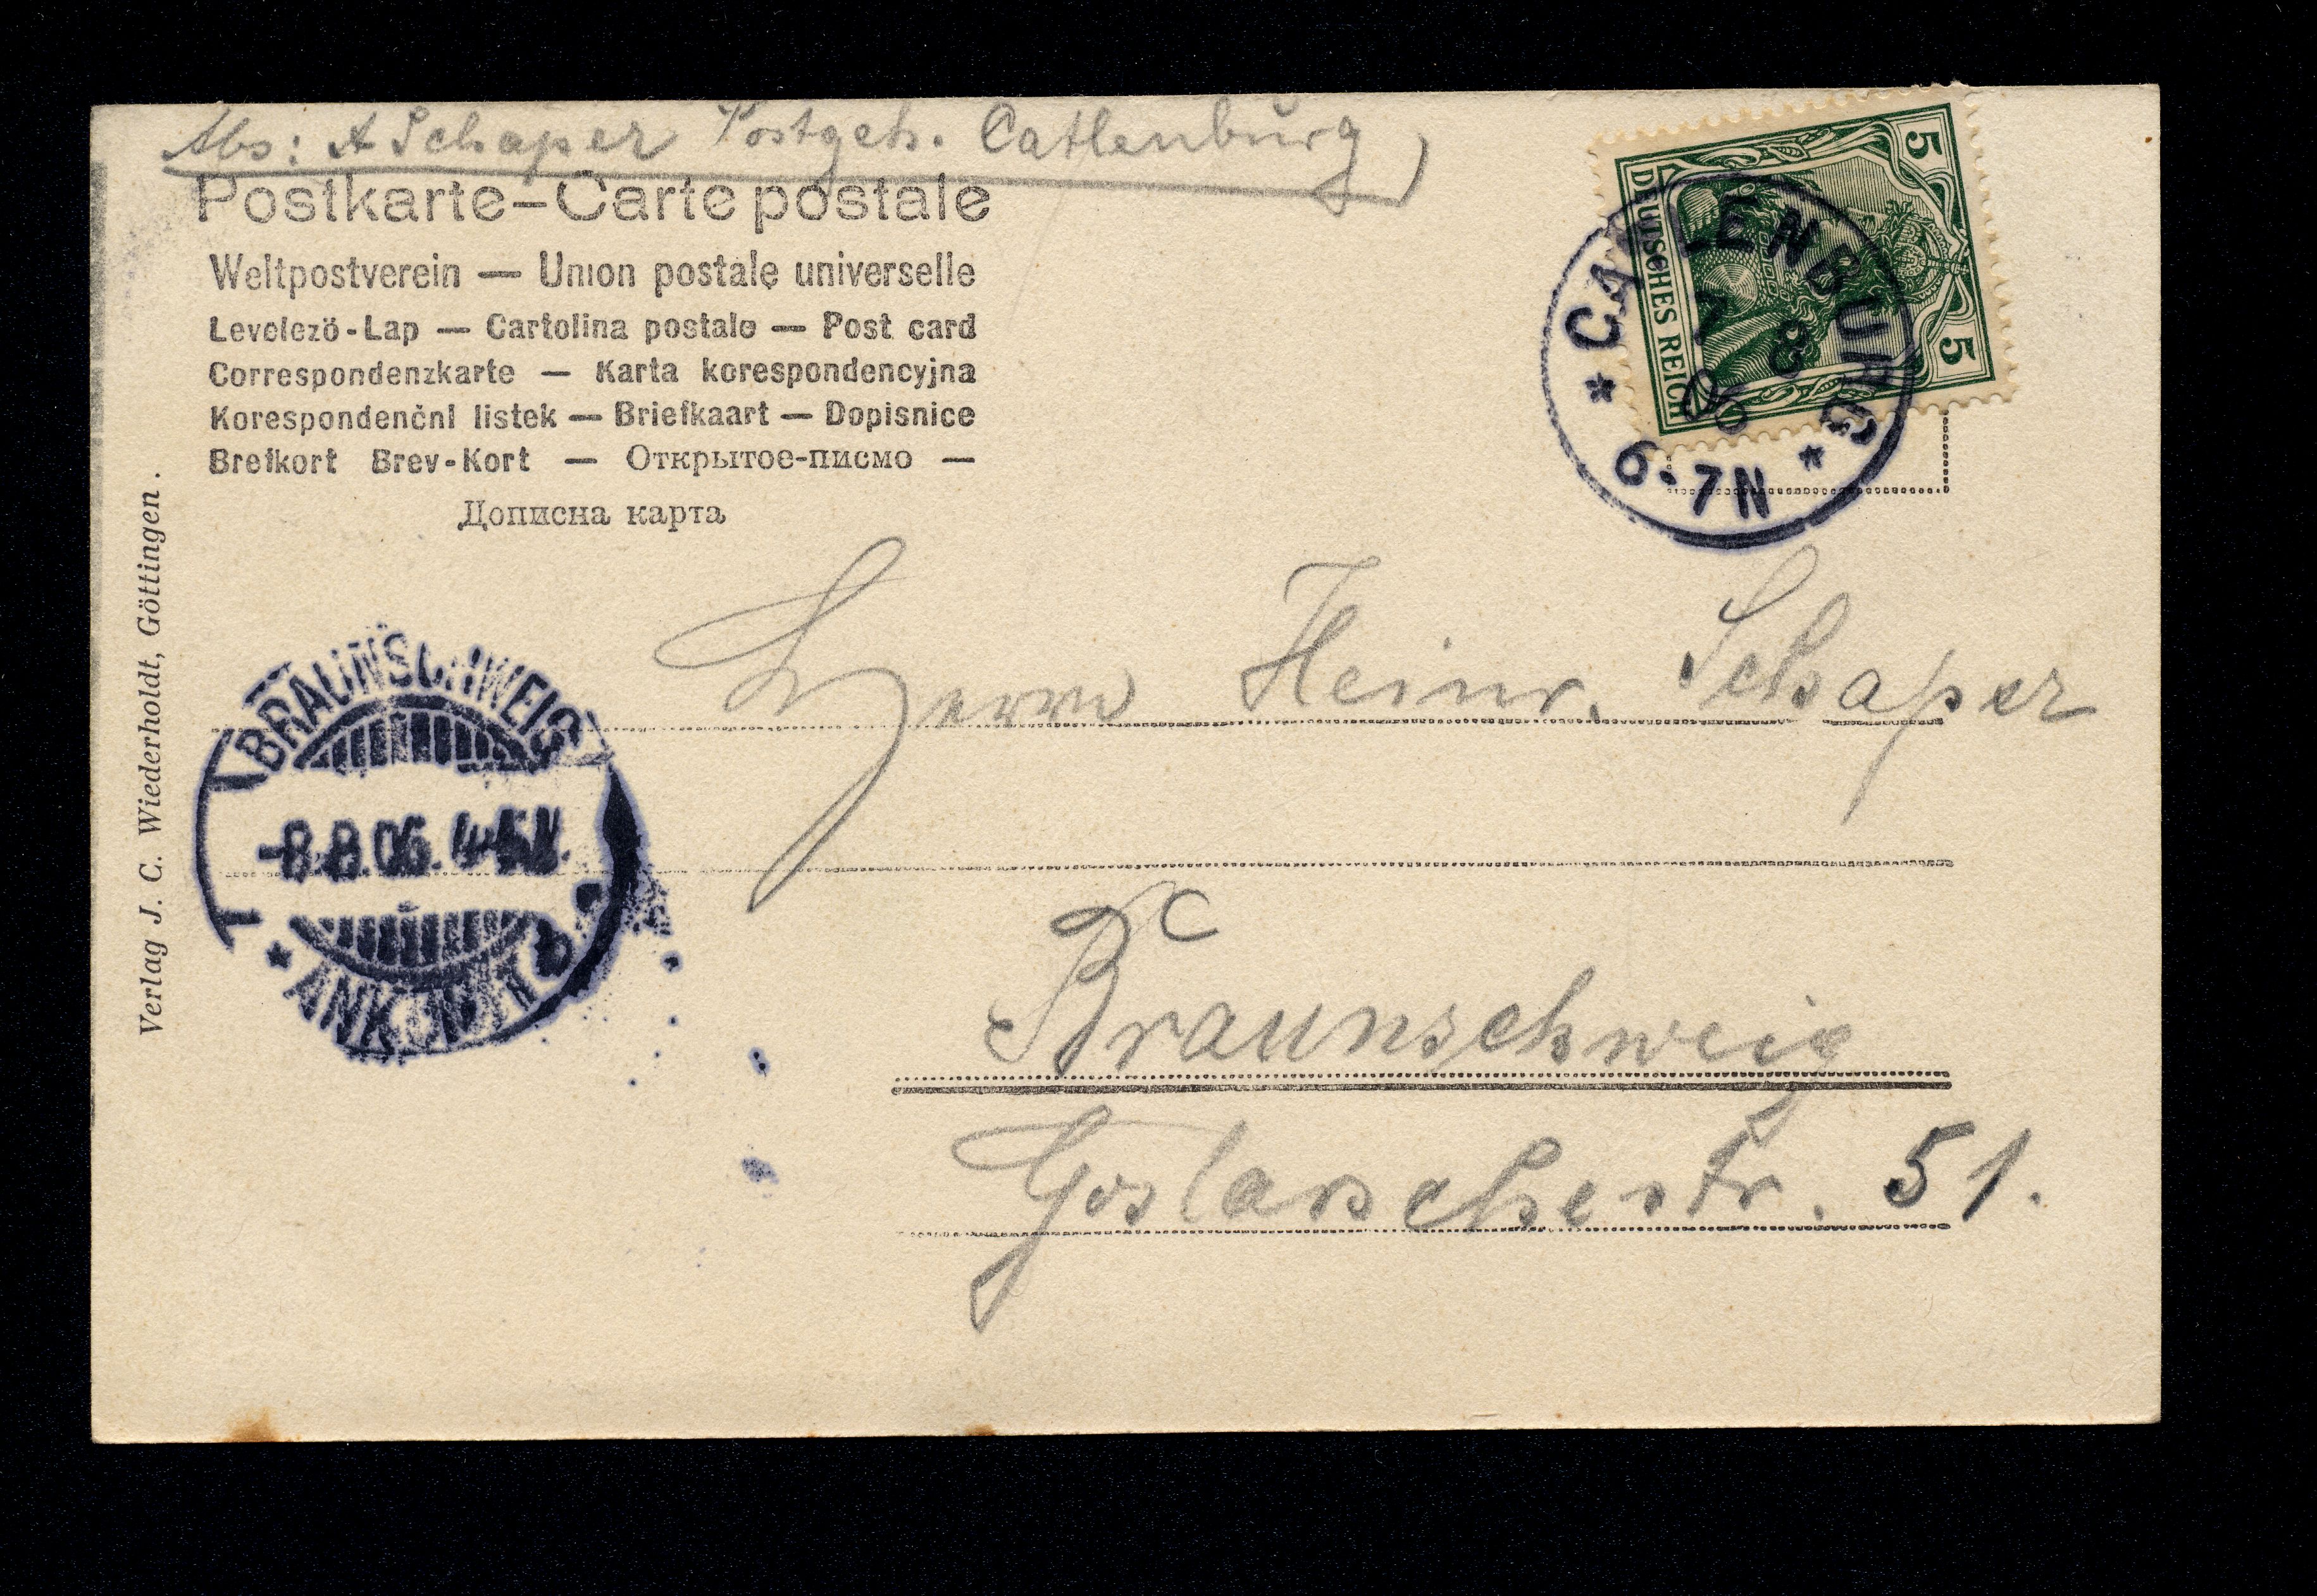 Abs: A Schaper Postgeh. Catlenburg
Postkarte – Carte postale
Weltpostverein — Union postale universelle
Levelező-Lap — Cartolina postale — Post card
Correspondenzkarte — Karta korespondencyjna
Korespondenční listek — Briefkaart — Dopisnice
Brefkort Brev-Kort — Открытое-писмо —
Дописна карта
DEUTSCHES REICH
5
5
* CATLENBURG *
7 8
06
6-7N
Verlag J. C. Wiederholdt, Göttingen.
BRAUNSCHWEIG
-8.8.06. 4-5N.
* ANKUNFT
1
1
Herrn Heinr. Schaper
C
Braunschweig
Goslarschestr. 51.